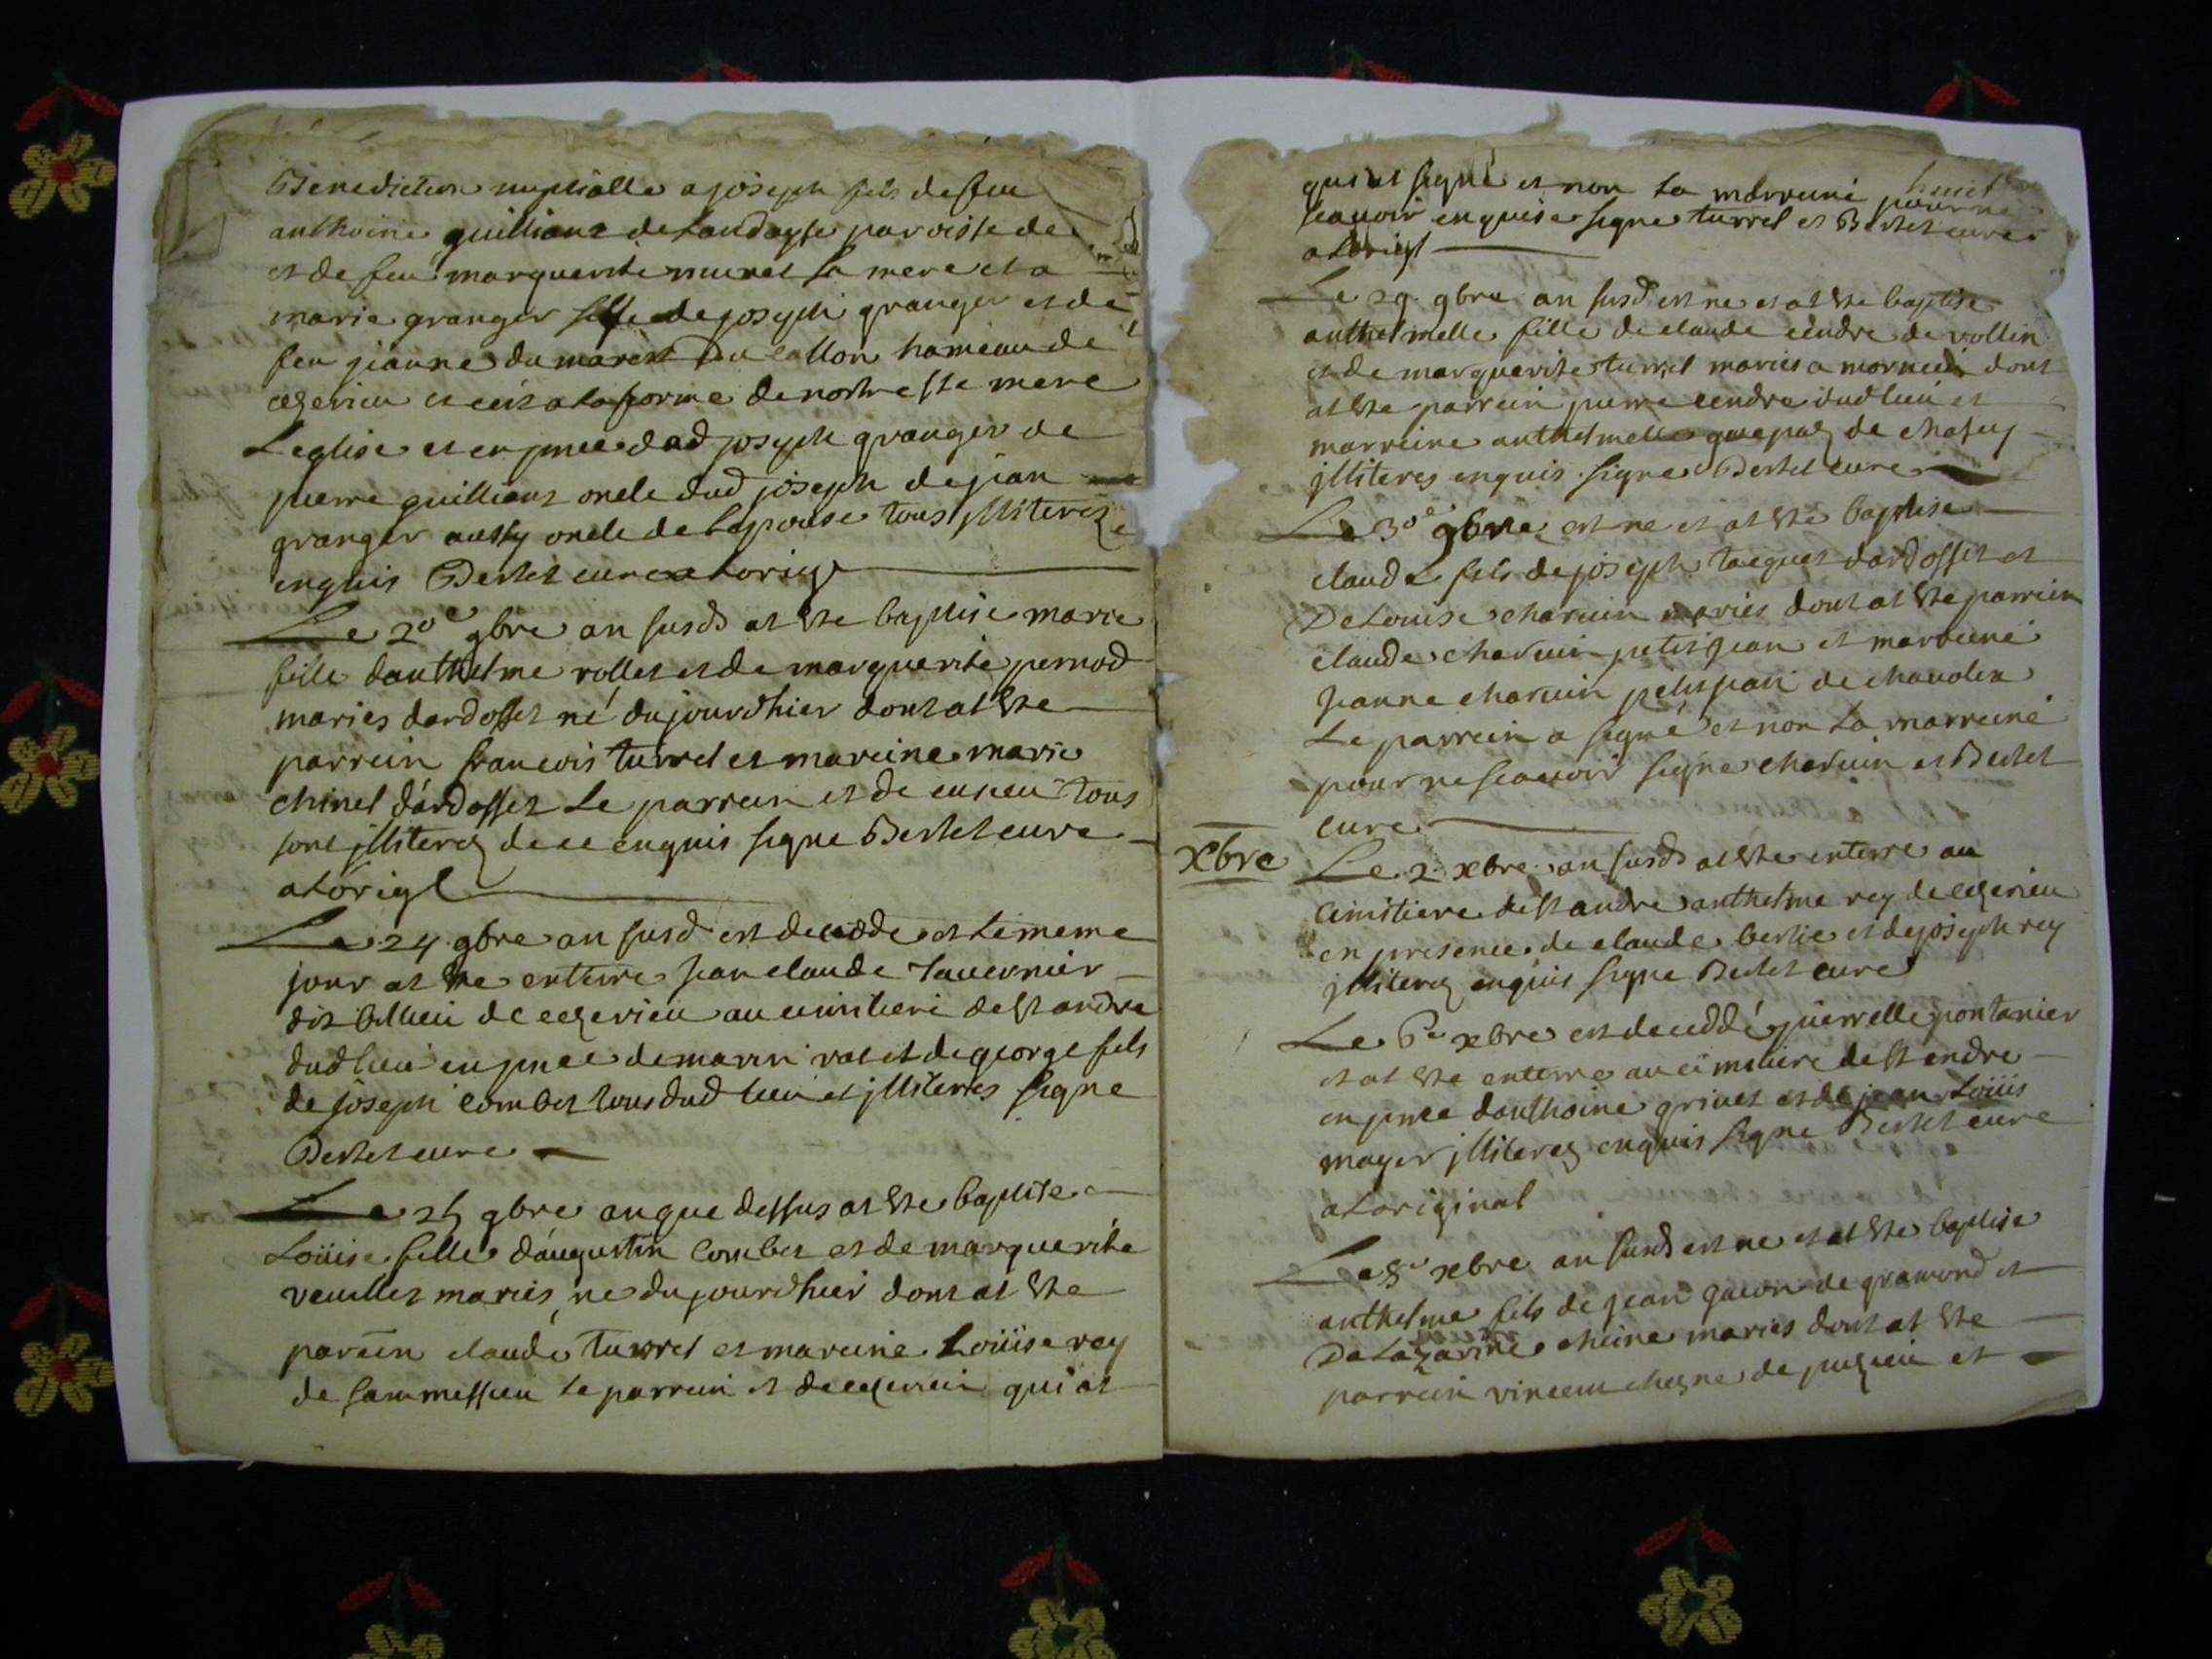 Benediction nuptialle a joseph fils de feu
anthoine guilliant de Landayse paroisse de
et de feu marguerite muret sa mere et a
marie granger fille de joseph granger et de
feu jeanne du marest du hameau de
cegerieu et ce a la forme de nostre ste mere
Leglise et en pnce dud joseph granger de
pierre guilliant oncle dud joseph de jean
granger aussy oncle de lepouse tous jlliterez
enquis Bertet cure a Lorigl
Le 20e 9bre an susd at ste baptise marie
fille danthelme rollet et de marguerite pernod
maries dardosset né dujourdhier dont at ste
parrein francois turrel et mareine marie
chinel dárdosset Le parrein et de cuzieu tous
sont jlliterez de ce enquis signe Bertet cure
a Lórigl
Le 24 9bre an susd est decede et Le meme
jour at ste enterre jean claude Tavernier
dit de cegerieu au cimitiere de st andre
dud lieu en pnce de marin rat et de george fils
de joseph combet tous dud lieu et jlliteres signe
Bertet cure
Le 25 9bre an que dessus at ste baptise
Loüise fille dáugustin Combet et de marguerite
veuillet maries, ne dujourdhier dont at ste
parein claude Turrel et mareine Loüise rey
de sammessieu le parrein et de cegerieu qui at
qui at signé et non La marreine pour ne
scauoir enquise signe turrel et Bertet cure
a Lorigl
Le 29 9bre an susd est ne et at ste baptise
anthelmelle fille de claude cendre de vollien
et de marguerite turrel maries a dont
at ste parrein pierre cendre dud lieu et
marreine anthelmelle de chasey
jlliteres enquis signe Bertet cure
Le 30e 9bre est ne et at ste baptise
claude fils de joseph tacquet dardosset et
De Louise charuin maries dont at ste parrein
claude charuin petitjean et marreine
jeanne charuin petitjean de chauolex
Le parrein a signé et non La marreine
pour ne scauoir signe charuin et Bertet
cure
Xbre
Le 2 xbre an susd at ste enterre au
cimitiere de st andre anthelme rey de cegerieu
en presence de claude berlie et de joseph rey
jlliterez enquis signe Bertet cure
Le 6e xbre est decedé pierrelle pontanier
et at ste enterre au cimitiere de st andre
en pnce danthoine grinet et de jean Loüis
mager jlliterez enquis signe Bertet cure
a Loriginal
Le 8e xbre an susd est ne et at ste baptise
anthelme fils de jean gacon de gramond et
De Lazarine cheine maries dont at ste
parrein vincent chesne de pugieu et